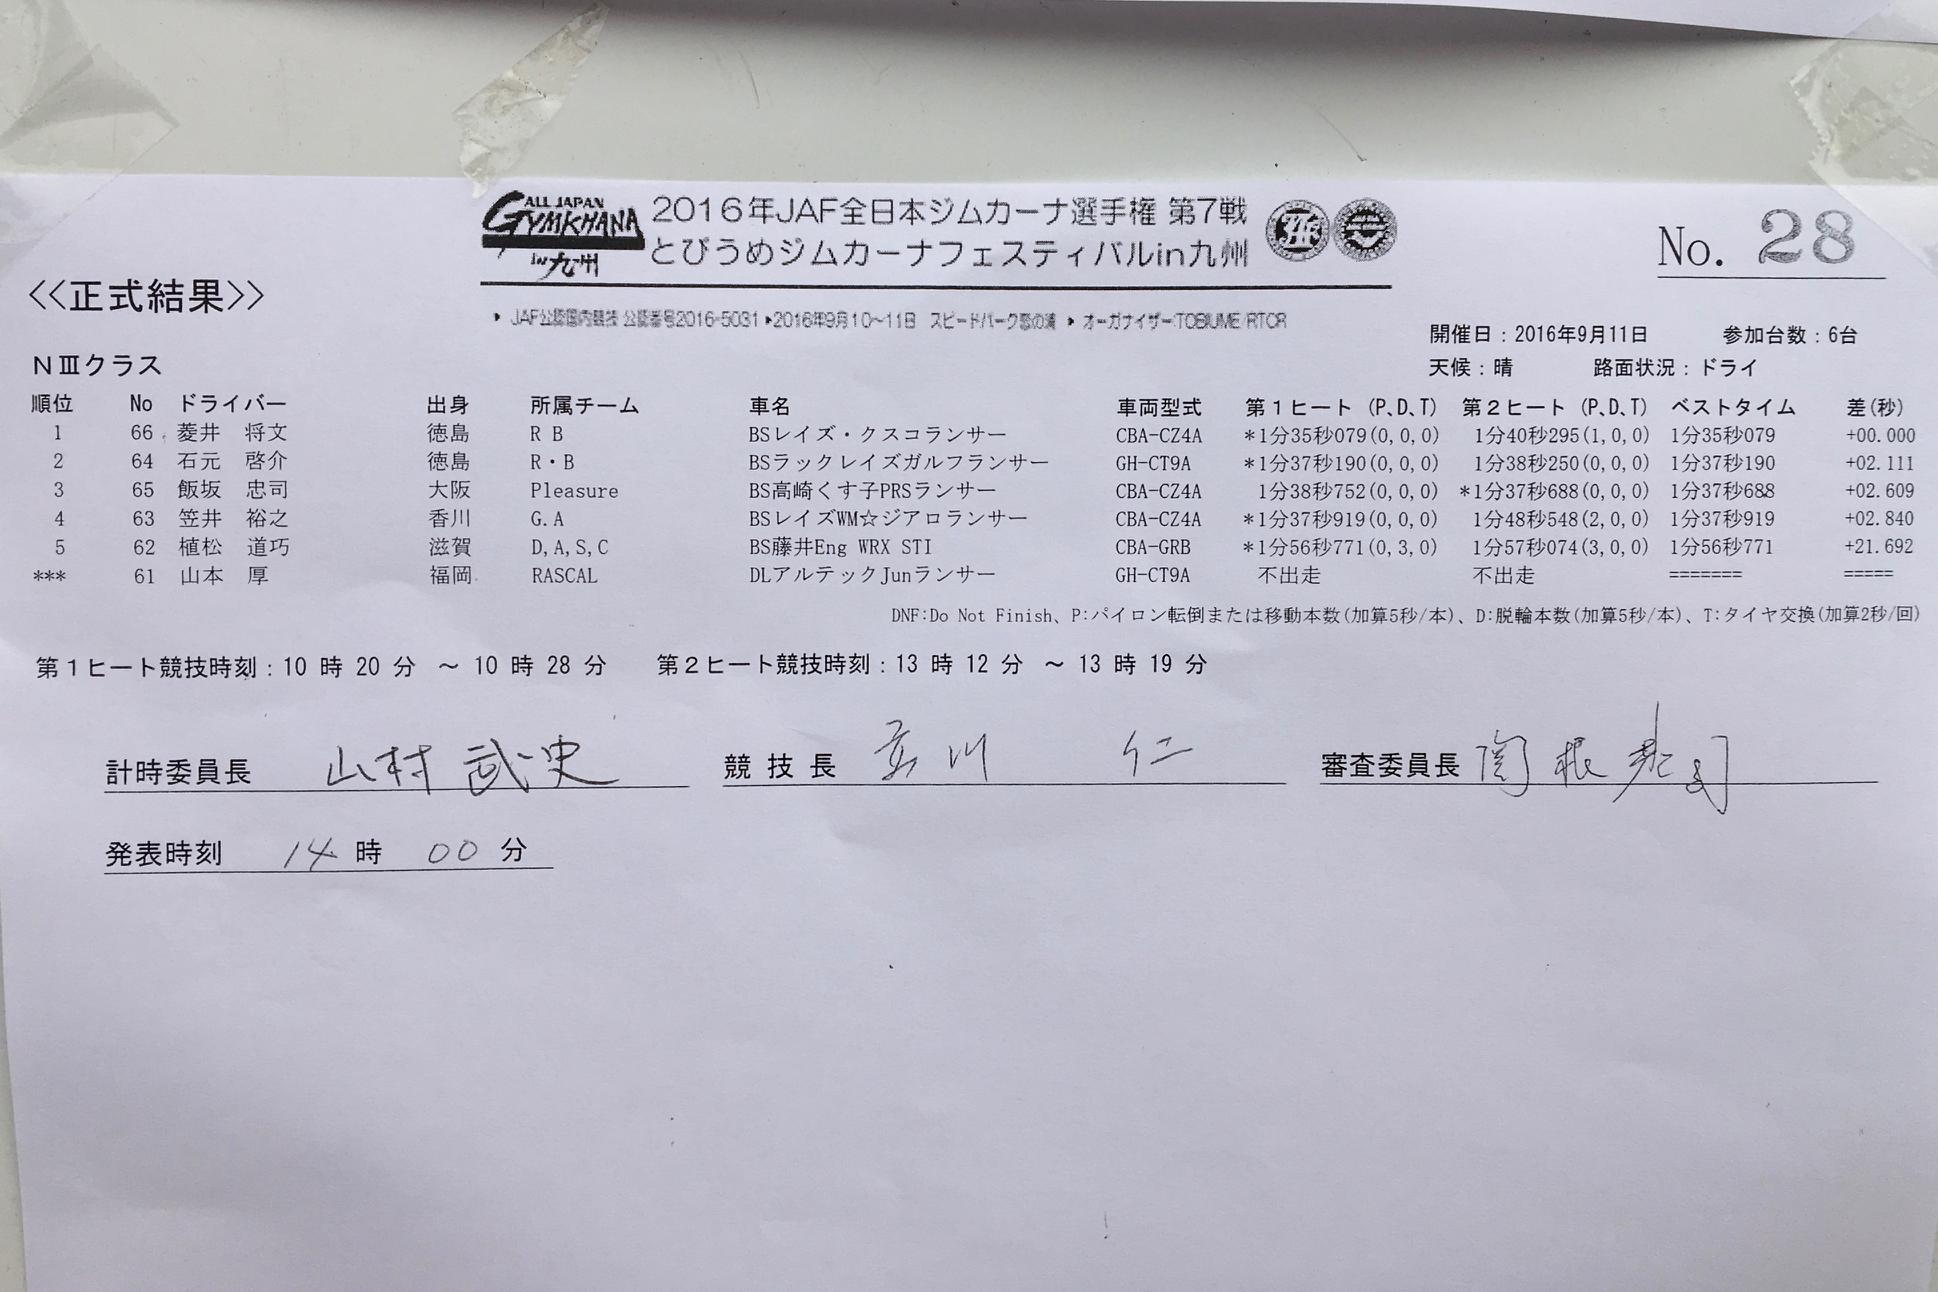 ALL JAPAN
GYMKHANA
in 九州
2016年JAF全日本ジムカーナ選手権 第7戦
とびうめジムカーナフェスティバルin九州
No. 28
<<正式結果>>
▶ JAF公認国内競技 公認番号2016-5031 ▶2016年9月10~11日 スピードパーク恋の浦 ▶ オーガナイザー:TOBIUME/RTCR
開催日：2016年9月11日 参加台数：6台
NⅢクラス 天候：晴 路面状況：ドライ
順位 No ドライバー 出身 所属チーム 車名 車両型式 第1ヒート (P、D、T) 第2ヒート (P、D、T) ベストタイム 差(秒)
1 66 菱井 将文 徳島 R B BSレイズ・クスコランサー CBA-CZ4A *1分35秒079(0,0,0) 1分40秒295(1,0,0) 1分35秒079 +00.000
2 64 石元 啓介 徳島 R・B BSラックレイズガルフランサー GH-CT9A *1分37秒190(0,0,0) 1分38秒250(0,0,0) 1分37秒190 +02.111
3 65 飯坂 忠司 大阪 Pleasure BS高崎くす子PRSランサー CBA-CZ4A 1分38秒752(0,0,0) *1分37秒688(0,0,0) 1分37秒688 +02.609
4 63 笠井 裕之 香川 G.A BSレイズWM☆ジアロランサー CBA-CZ4A *1分37秒919(0,0,0) 1分48秒548(2,0,0) 1分37秒919 +02.840
5 62 植松 道巧 滋賀 D,A,S,C BS藤井Eng WRX STI CBA-GRB *1分56秒771(0,3,0) 1分57秒074(3,0,0) 1分56秒771 +21.692
*** 61 山本 厚 福岡 RASCAL DLアルテックJunランサー GH-CT9A 不出走 不出走 ======= =====
DNF:Do Not Finish、P:パイロン転倒または移動本数(加算5秒/本)、D:脱輪本数(加算5秒/本)、T:タイヤ交換(加算2秒/回)
第1ヒート競技時刻：10 時 20 分 ～ 10 時 28 分 第2ヒート競技時刻：13 時 12 分 ～ 13 時 19 分
計時委員長 山村 武史 競 技 長 川 仁 審査委員長 関根
発表時刻 14 時 00 分